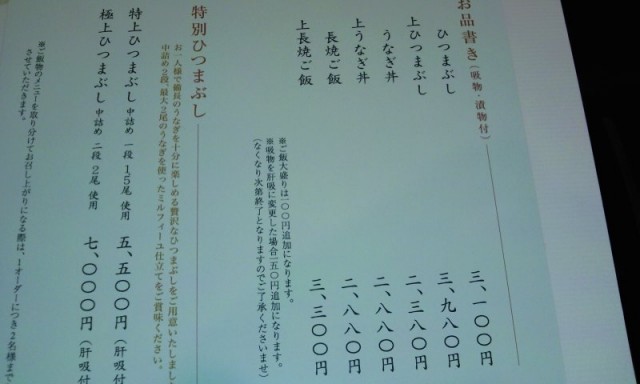 お品書き(吸物・漬物付)
ひつまぶし 三、一〇〇円
上ひつまぶし 三、九八〇円
うなぎ丼 二、三八〇円
上うなぎ丼 二、八八〇円
長焼ご飯 二、八八〇円
上長焼ご飯 三、三〇〇円
※ご飯大盛りは一〇〇円追加になります。
※吸物を肝吸に変更した場合一五〇円追加になります。
(なくなり次第終了となりますのでご了承くださいませ)
特別ひつまぶし
お一人様で備長のうなぎを十分に楽しめる贅沢なひつまぶしをご用意いたしまし
中詰め2段、最大2尾のうなぎを使ったミルフィーユ仕立てをご賞味ください。
特上ひつまぶし 中詰め 一段 1.5尾 使用 五、五〇〇円(肝吸付
極上ひつまぶし 中詰め 二段 2尾 使用 七、〇〇〇円(肝吸付
※ご飯物のメニューを取り分けてお召し上がりになる際は、1オーダーにつき2名様まで
させていただきます。